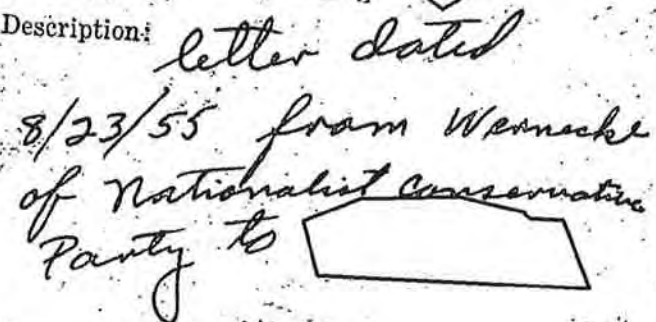 Description: letter dated
8/23/55 from Wernecke
of Nationalist Conservative
Party to